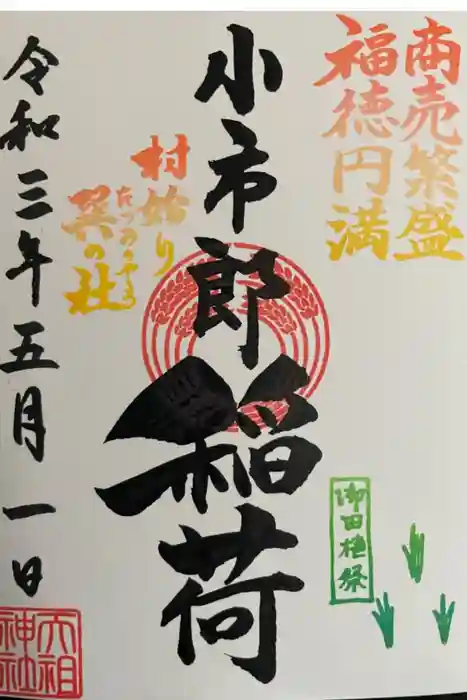 商売繁盛
福徳円満
小市郎稲荷
村始り
たつみの
巽の社
御田植祭
令和三年五月一日
大祖神社